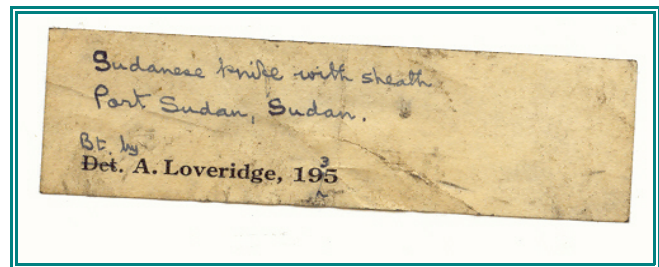 Sudanese knife with sheath
Port Sudan, Sudan.
Bt. by
Det. A. Loveridge, 1935